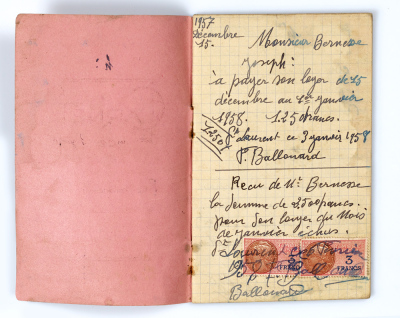 1957
Décembre
15.
Monsieur Bernesse
Joseph :
à payer son loyer de 15
décembre au 1er janvier
1958. 1250francs.
1250f
St Laurent ce 3 janvier 1958
P. Ballouard
Recu de Mr Bernesse
la somme de 2500francs.
pour son loyer du Mois
de janvier échus.
St Laurent
3
FRANCS
Ballouard